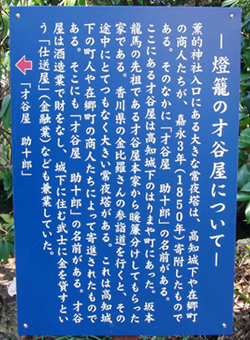 ―燈籠の才谷屋について―
薫的神社入口にある大きな常夜塔は、高知城下や在郷町
の商人たちが、嘉永3年（1850年）寄附したもので
ある。そのなかに「才谷屋　助十郎」の名前がある。
ここにある才谷屋は高知城下のはりまや町にあった。坂本
龍馬の先祖である才谷屋本家から暖簾分けしてもらった
家である。香川県の金比羅さんの参詣道を行くと、その
途中にとてつもなく大きい常夜塔がある。これは高知城
下の町人や在郷町の商人たちによって寄進されたもので
ある。そこにも「才谷屋　助十郎」の名前がある。才谷
屋は酒造業で財をなし、城下に住む武士に金を貸すとい
う「仕送屋」（金融業）なども兼業していた。
「才谷屋　助十郎」